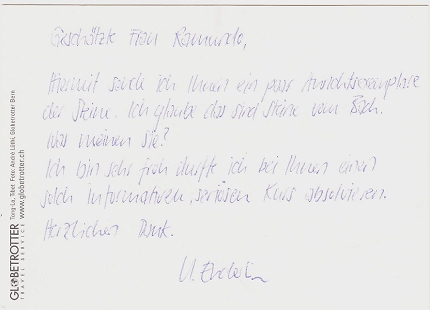 Geschätzte Frau
Hiermit sende ich Ihnen ein paar Ansichtsexemplare
der Steine. Ich glaube das sind Steine vom Bach.
Was meinen sie?
Ich bin sehr froh durfte ich bei Ihnen einen
solch informativen, seriösen Kurs absolvieren.
Herzlichen Dank.
U.
GLOBETROTTER
TRAVEL SERVICE
Tong-La, Tibet. Foto: André Lüthi, Globetrotter Bern
www.globetrotter.ch